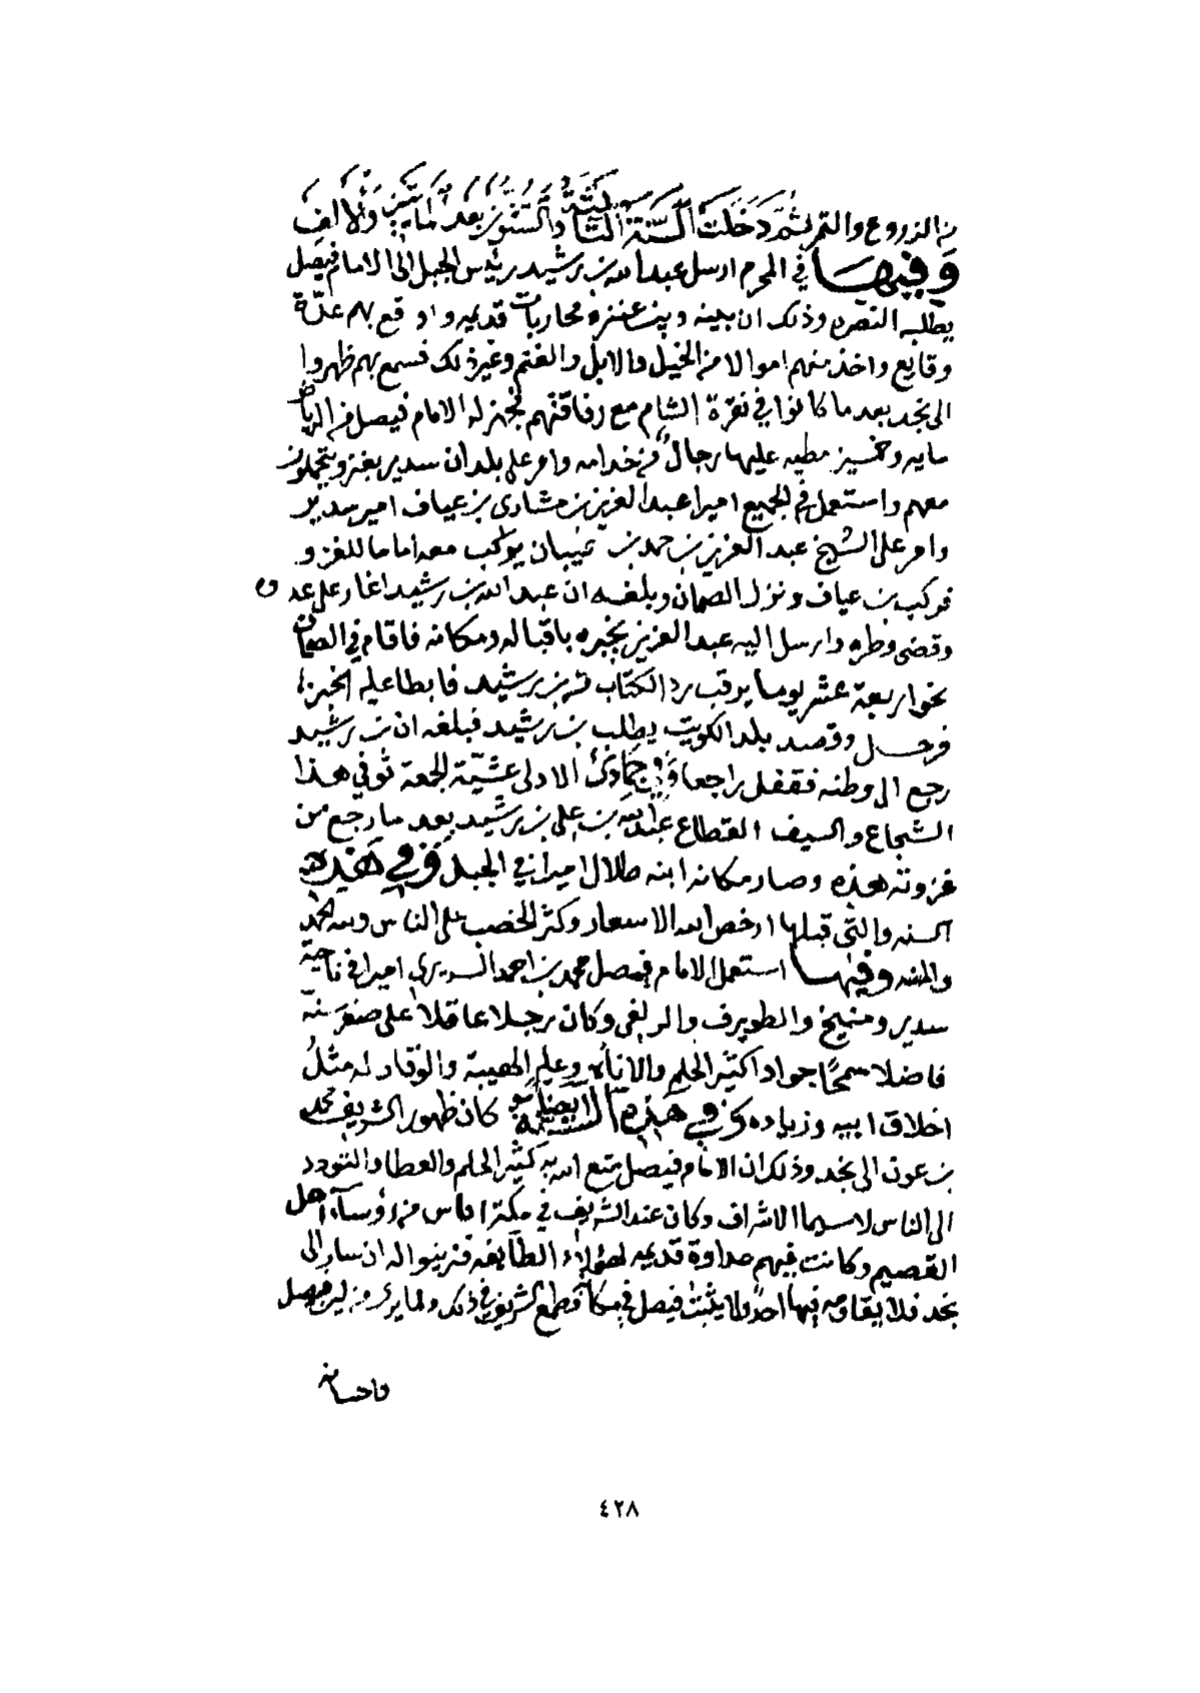 من الزروع والتمر ثُمَّ دَخَلَتْ السَّنَة الثَّالِثَة والسِّتُّون بَعْدَ المَائتَين وَالأَلفْ
وَفيهَا في المحرم ارسل عبدالله بن رشيد رئيس الجبل الى الامام فيصل
يطلبه النصره وذلك ان بينه وبين عنزه محاربات قديمه واوقع بهم عدّة
وقايع واخذ منهم اموالا من الخيل والابل والغنم وغير ذلك فسمع بهم ظهروا
الى نجد بعد ما كانوا في نقرة الشام مع رفاقتهم فجهز له الامام فيصل من الرياض
مايه وخمسين مطيه عليها رجالٌ من خدامه وامر على بلدان سدير بغزو يتجملون
معهم واستعمل في الجميع اميرا عبدالعزيز بن مشاري بن عياف امير سدير
وامر على الشيخ عبدالعزيز بن حمد بن عيبان يركب معه اماما للغزو
فركب بن عياف ونزل الصمان وبلغه ان عبدالله بن رشيد اغار على عدوه
وقضى وطره وارسل اليه عبدالعزيز يخبره باقباله ومكانه فاقام في الصمان
نحو اربعة عشر يوما يرقب رد الكتاب من بن رشيد فابطا عليه الخبر
فرحل وقصد بلد الكويت يطلب بن رشيد فبلغه ان بن رشيد
رجع الى وطنه فقفل راجعا وَفي جمَادىٰ الاولى عشيّة الجمعة توفي هذا
الشجاع والسيف القطاع عبدالله بن علي بن رشيد بعد ما رجع من
غزوته هذه وصار مكانه ابنه طلال اميرا في الجبل وَفي هَذِه
السنه والتي قبلها ارخص الله الاسعار وكثر الخصب على الناس ولله الحمد
والمنه وفيهَا استعمل الامام فيصل محمد بن احمد السديري اميرا في ناحية
سدير ومنيخ والطويرف والزلفي وكان رجلا عاقلا على صغر سنّه
فاضلا سمحًا جوادا كثير الحلم والاناة وعليه الهيبة والوقار له مثلُ
اخلاق ابيه وزياده وَفي هَذِه السَّنَة ايضًا كان ظهور الشريف محمد
بن عون الى نجد وذلك ان الامام فيصل متع الله به كثير الحلم والعطا والتودد
الى الناس لاسيما الاشراف وكان عند الشريف في مكة اناس من رؤسآء اهل
القصيم وكانت فيهم عداوة قديمه لهؤلاء الطايفه فزينوا له ان سار الى
نجد فلا يقاومه فيها احدٌ ولا يثبت فيصل في مكانه فطمع الشريف في ذلك ولما يرى من لين فيصل
واحسانه
٤٢٨